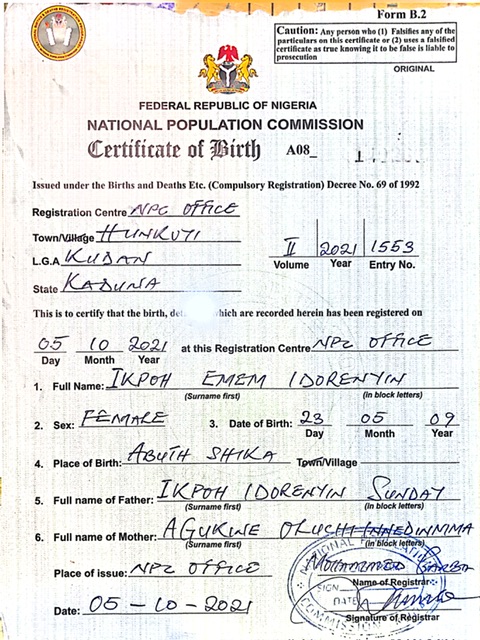 Form B.2
Caution: Any person who (1) Falsifies any of the particulars on this certificate or (2) uses a falsified certificate as true knowing it to be false is liable to prosecution
ORIGINAL
FEDERAL REPUBLIC OF NIGERIA
NATIONAL POPULATION COMMISSION
Certificate of Birth A08_
Issued under the Births and Deaths Etc. (Compulsory Registration) Decree No. 69 of 1992
Registration Centre NPC OFFICE
Town/Village HUNKUYI
L.G.A KUDAN
State KADUNA
II 2021 1553
Volume Year Entry No.
This is to certify that the birth, which are recorded herein has been registered on
05 10 2021 at this Registration Centre NPC OFFICE
Day Month Year
1. Full Name: IKPOH EMEM IDORENYIN
(Surname first) (in block letters)
2. Sex: FEMALE 3. Date of Birth: 23 05 09
Day Month Year
4. Place of Birth: ABUTH SHIKA Town/Village
5. Full name of Father: IKPOH IDORENYIN SUNDAY
(Surname first) (in block letters)
6. Full name of Mother: AGUKWE OLUCHI
(Surname first) (in block letters)
Place of issue: NPC OFFICE MOHAMMED GARBA
Name of Registrar
Date: 05-10-2021
SIGN
DATE
Signature of Registrar